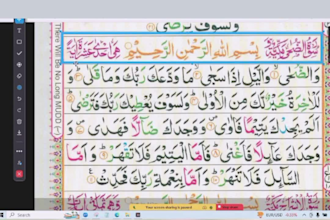 ولسوف يرضى
بِسْمِ اللهِ الرَّحْمٰنِ الرَّحِيْمِ
وَالضُّحٰى وَالَّيْلِ اِذَا سَجٰى مَا وَدَّعَكَ رَبُّكَ وَمَا قَلٰى
لَلْاٰخِرَةُ خَيْرٌ لَّكَ مِنَ الْاُوْلٰى وَلَسَوْفَ يُعْطِيْكَ رَبُّكَ فَتَرْضٰى
اَلَمْ يَجِدْكَ يَتِيْمًا فَاٰوٰى وَوَجَدَكَ ضَآلًّا فَهَدٰى وَ
وَجَدَكَ عَآئِلًا فَاَغْنٰى فَاَمَّا الْيَتِيْمَ فَلَا تَقْهَرْ وَاَمَّا
السَّآئِلَ فَلَا تَنْهَرْ وَاَمَّا بِنِعْمَةِ رَبِّكَ فَحَدِّثْ
There Will Be No Long MUDD
Search